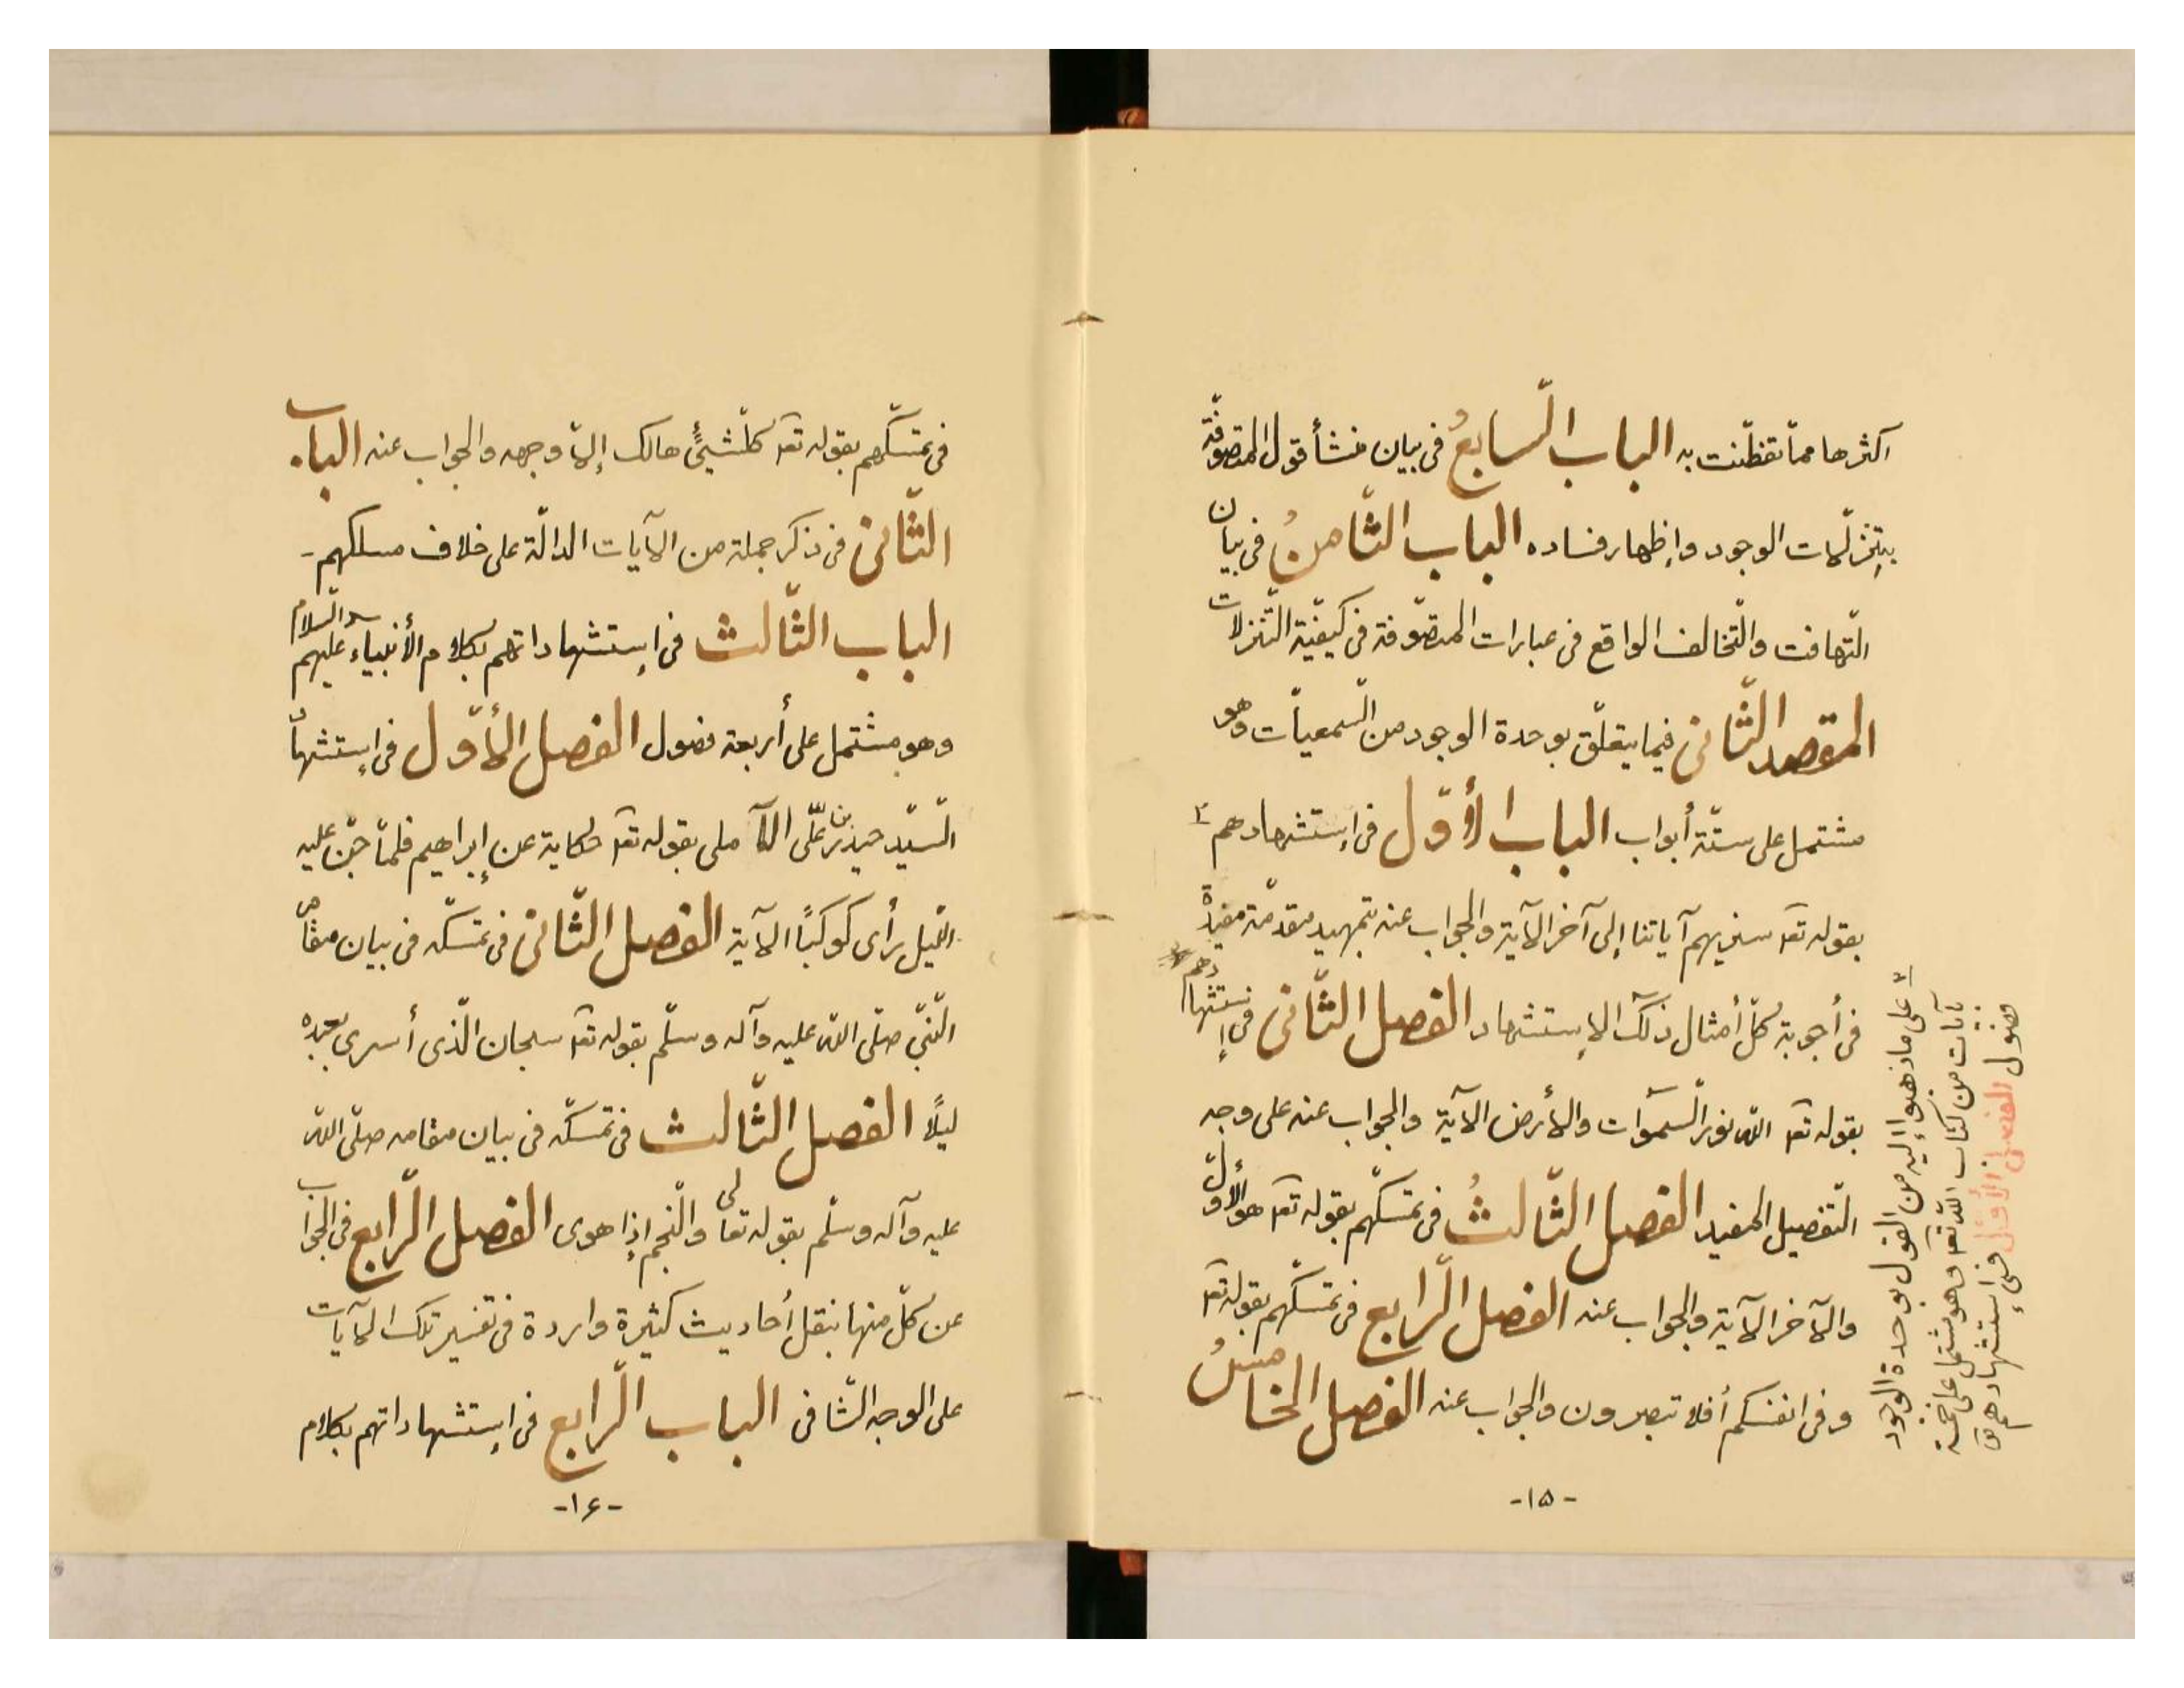 اكثرها ممّا تفطّنت به الباب السّابعُ فى بيان منشأ قول المتصوّفة
بتنزّلات الوجود وإظهار فساده الباب الثّامنُ فى بيان
التّهافت والتّخالف الواقع فى عبارات المتصوّفة فى كيفيّة التّنزلات
المقصد الثّانى فيما يتعلّق بوحدة الوجود من السّمعيّات وهو
مشتمل على ستّة أبواب الباب الأوّل فى إستشهادهم
بقوله تعـ سنريهم آياتنا إلى آخر الآية والجواب عنه بتمهيد مقدّمة مفيدة
فى أجوبة كلّ أمثال ذلك الإستشهاد الفصل الثّانى فى إستشهادهم
بقوله تعـ اللّه نور السّموات والأرض الآية والجواب عنه على وجه
التّفصيل المفيد الفصل الثّالثُ فى تمسّكهم بقوله تعـ هو الأوّل
والآخر الآية والجواب عنه الفصل الرّابع فى تمسّكهم بقوله تعـ
وفى انفسكم أفلا تبصرون والجواب عنه الفصل الخامسُ
على ما ذهبوا إليه من القول بوحدة الوجود
بآيات من كتاب اللّه تعـ وهو مشتمل على خمسة
فصول الفصل الأوّل فى إستشهادهم
-١٥-
فى تمسّكهم بقوله تعـ كلّشيئٍ هالك إلّا وجهه والجواب عنه الباب
الثّانى فى ذكر جملة من الآيات الدالّة على خلاف مسلكهم -
الباب الثّالث فى إستشهاداتهم بكلام الأنبياء عليهم السّلام
وهو مشتمل على أربعة فصول الفصل الأوّل فى إستشهاد
السّيّد حيدر بن علّى الآملى بقوله تعـ حكاية عن إبراهيم فلمّا جنّ عليه
اللّيل رأى كوكبًا الآية الفصل الثّانى فى تمسّكه فى بيان مقام
النّبىّ صلّى اللّه عليه وآله وسلّم بقوله تعـ سبحان الّذى أسرى بعبده
ليلًا الفصل الثّالث فى تمسّكه فى بيان مقامه صلّى اللّه
عليه وآله وسلّم بقوله تعالى والنّجم إذا هوى الفصل الرّابع فى الجواب
عن كلّ منها بنقل أحاديث كثيرة واردة فى تفسير تلك الآيات
على الوجه الشّافى الباب الرّابع فى إستشهاداتهم بكلام
-١۶-